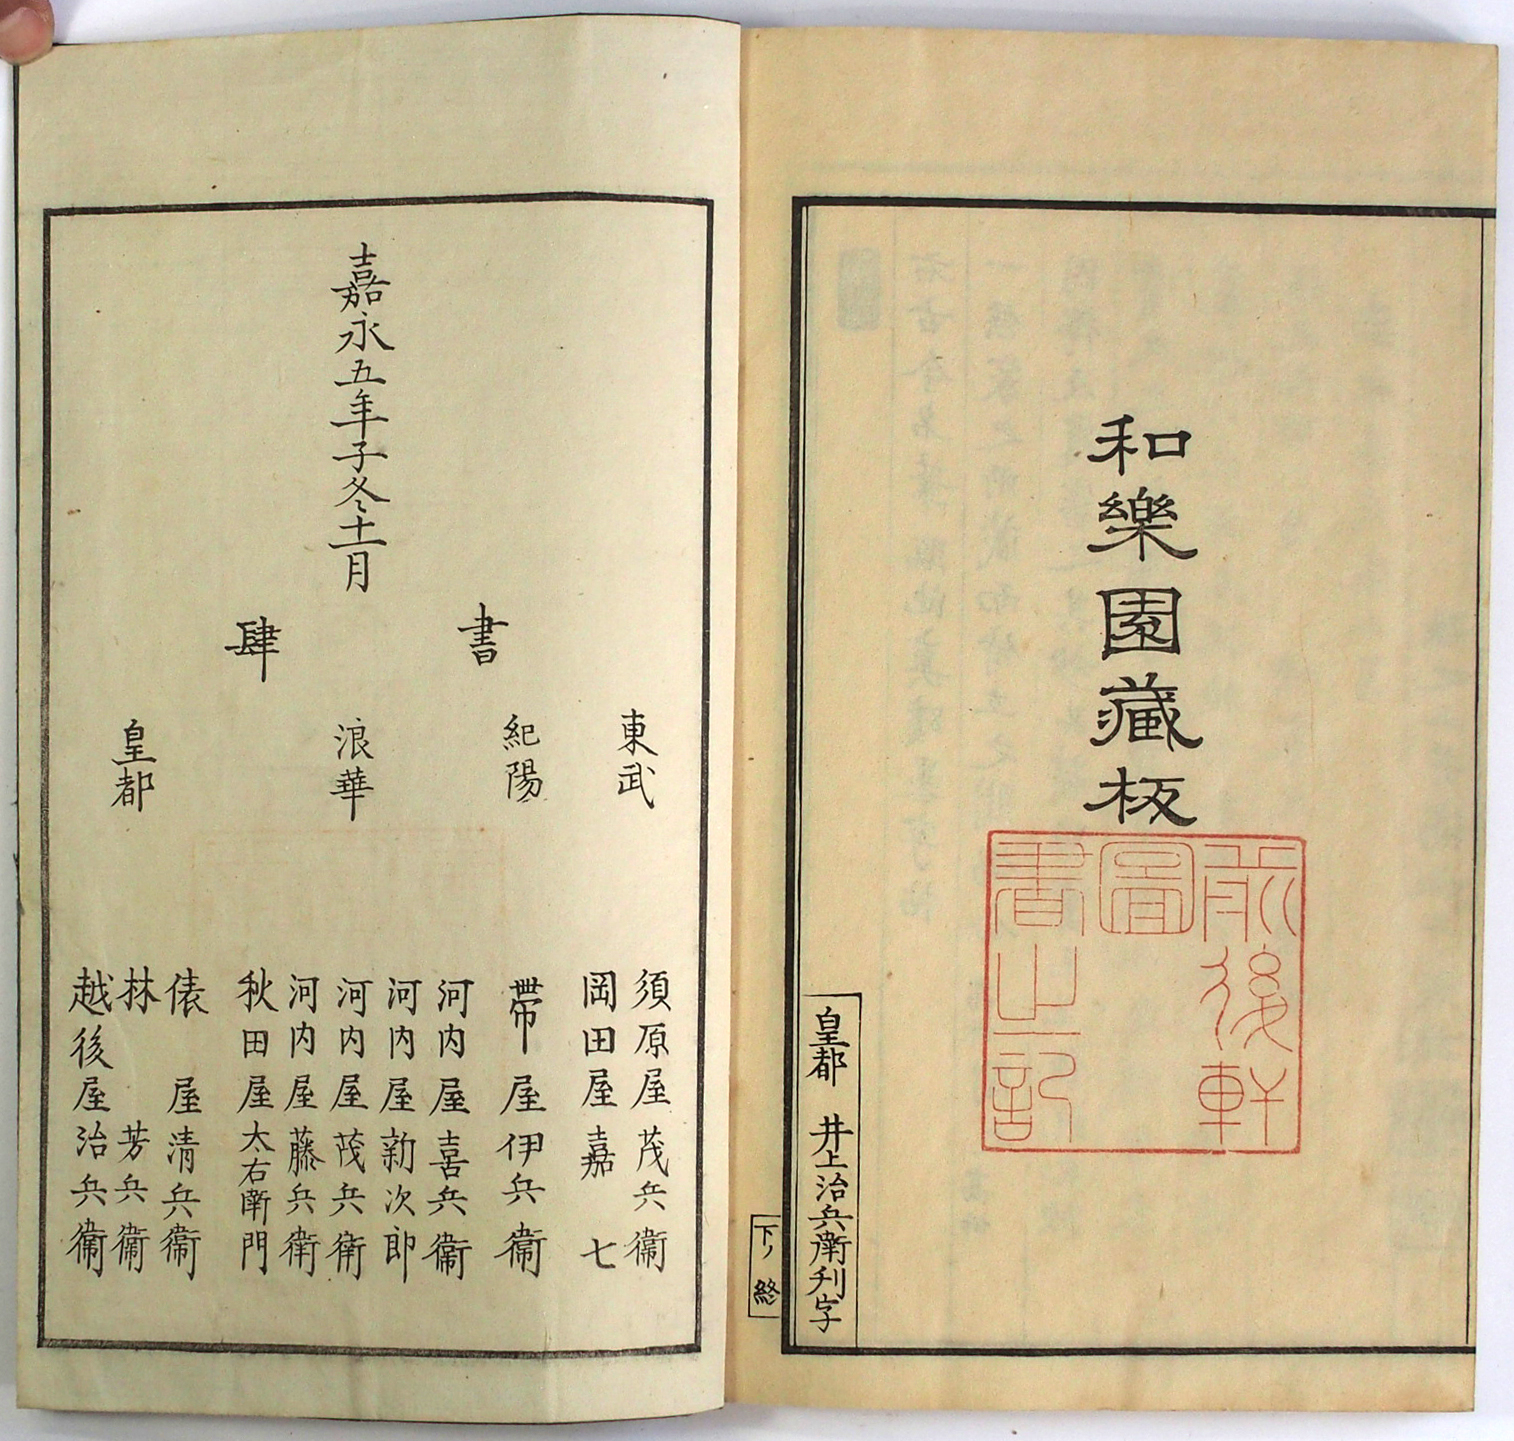 和樂園藏板
前後軒
圖
書之記
皇都 井上治兵衞刋字
下ノ終
嘉永五年子冬十一月
書肆
東武
須原屋茂兵衞
岡田屋嘉七
紀陽
帶屋伊兵衞
浪華
河内屋喜兵衞
河内屋新次郎
河内屋茂兵衞
河内屋藤兵衞
秋田屋太右衞門
皇都
俵屋清兵衞
林芳兵衞
越後屋治兵衞